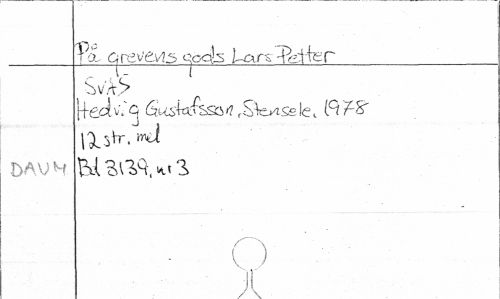 På grevens gods Lars Petter
SVAS
Hedvig Gustafsson, Stensele, 1978
12 str. mel
DAUM Bd 3139, nr 3